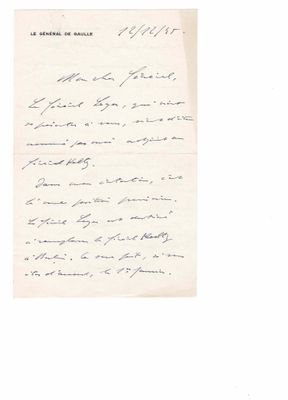 LE GÉNÉRAL DE GAULLE
12/12/45.
Mon cher Général,
Le Général Layer, qui vient
se présenter à vous, vient d'être
nommé par moi adjoint au
Général Kœltz.
Dans mes intentions, c'est
là une position provisoire.
Le Gal Layer est destiné
à remplacer le Gal Kœltz
à Berlin. Ce sera fait, si vous
êtes d'accord, le 1er Janvier.